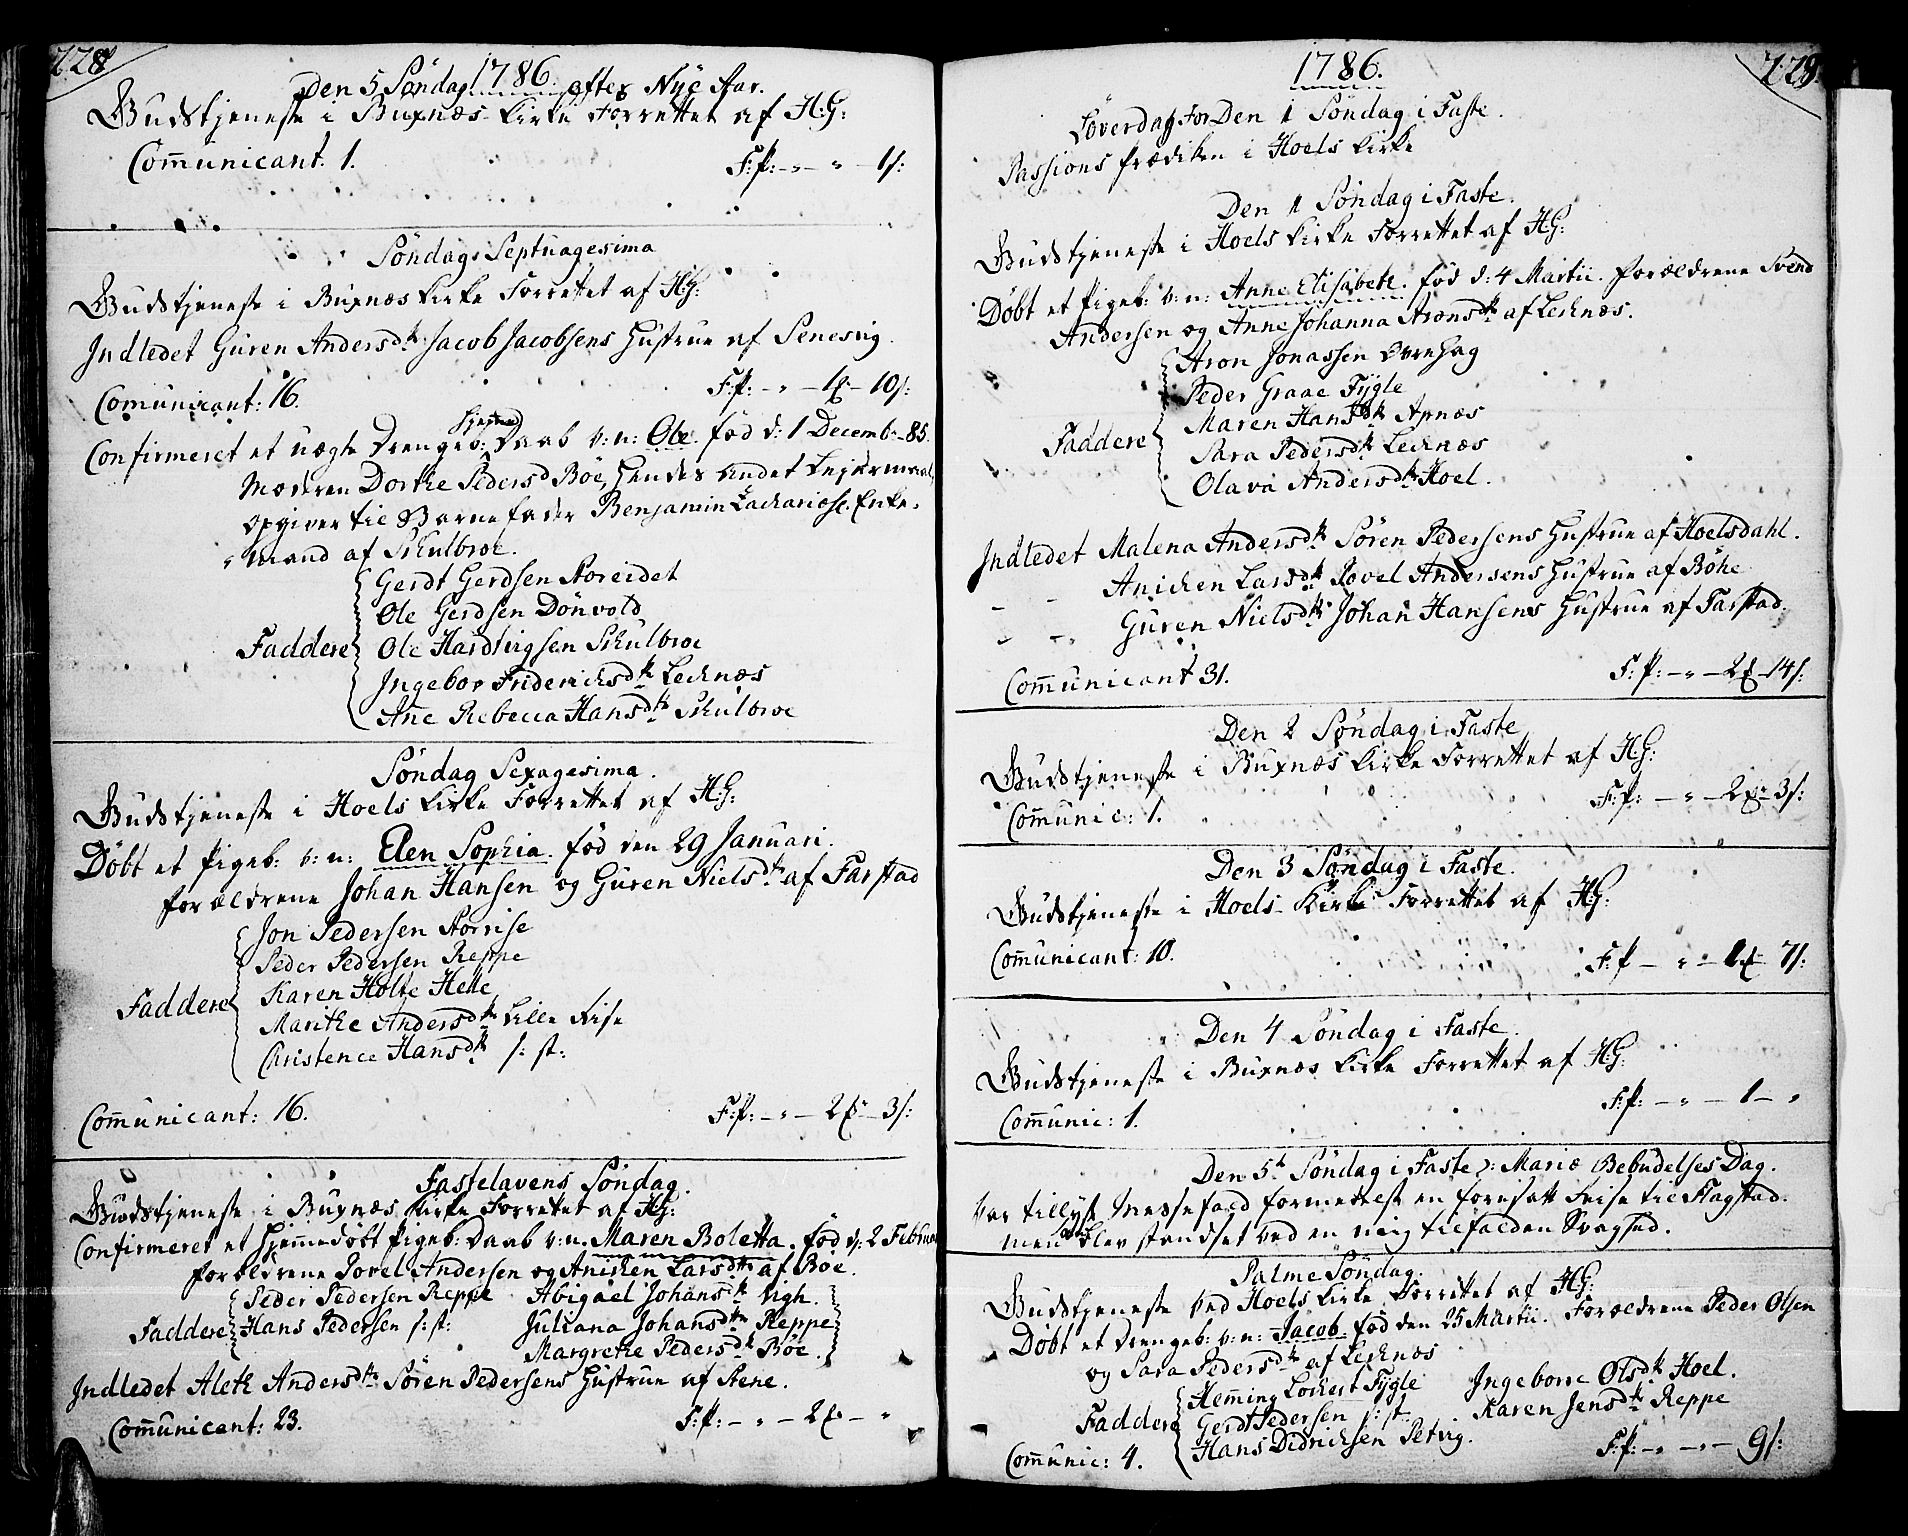 228
1786.
Den 5 Søndag efter Nye Aar.
Gudstjeneste i Buxnæs Kirke Forrettet af H:G:
Com̄unicant: 1. F:P: - " - " - 1 s:
Søndag Septuagesima
Gudstjeneste i Buxnæs Kirke Forrettet af H:G:
Indledet Guren Andersd: Jacob Jacobsens Hustrue af Penesvig.
Comunicant: 16. F:P: - " - 1 - 10 s:
Confirmeret et uægte Drengeb: Hjeme Daab v: n: Ole. fød d: 1 Decemb: 85.
Moderen Dorthe Pedersd Bøe, hendes andet Lejermaal,
opgiver til Barnefader Benjamin Zachariæs. Enke-
mand af Skulbroe.
Gerdt Gerdsen Storeidet
Ole Gerdsen Dønvold
Faddere Ole Hardvigsen Skulbroe
Ingebor Friderichsd: Lecknæs
Ane Rebecca Hansd: Skulbroe
Søndag Sexagesima.
Gudstjeneste i Hoels Kirke Forrettet af H:G:
Døbt et Pigeb: v: n: Elen Sophia. fød den 29 Januari.
forældrene Johan Hansen og Guren Nielsd: af Farstad
Jon Pedersen Storrise
Peder Pedersen Reppe
Karen Holte Helle
Faddere Marithe Andersd: Lille Rise
Christence Hansd: s: st:
Com̄unicant: 16. F:P: - " - 2 - 3 s:
Fastelavens Søndag.
Gudstjeneste i Buxnæs Kirke Forrettet af H:G:
Confirmeret et Hjem̄edøbt Pigeb: Daab v: n: Maren Boletta. fød d: 2 Februar
forældrene Povel Andersen og Anichen Larsd: af Bøe.
Peder Pedersen Reppe Abigael Johansd: Vigh.
Faddere Hans Pedersen s: st: Juliana Johansd: Reppe
Margrethe Pedersd: Bøe.
Indledet Aleth Andersd: Søren Pedersens Hustrue af Stene.
Com̄unicant: 23. F:P: - " - 2 - "
229
1786.
Løverdag for Den 1 Søndag i Faste.
Passions Prædiken i Hoels Kirke
Den 1 Søndag i Faste.
Gudstjeneste i Hoels Kirke Forrettet af H:G:
Døbt et Pigeb: v: n: Anne Elisabeth. fød d: 4 Martii. forældrene Svend
Andersen og Anne Johanna Aronsd: af Lecknæs.
Aron Jonassen Offrehag
Peder Graae Fygle
Maren Hansd: Apnæs
Faddere Sara Pedersd: Lecknæs
Olava Andersd: Hoel.
Indledet Malena Andersd: Søren Pedersens Hustrue af Hoelsdahl.
- - Anichen Larsd: Povel Andersens Hustrue af Bøhe
- - Guren Nielsd: Johan Hansens Hustrue af Farstad.
Com̄unicant 31. F:P: - " - 2 - 14 s:
Den 2 Søndag i Faste
Gudstjeneste i Buxnæs Kirke Forrettet af H:G:
Com̄unic: 1. F:P: - " - 2 - 3 s:
Den 3 Søndag i Faste.
Gudstjeneste i Hoels Kirke Forrettet af H:G:
Com̄unicant: 10. F:P - " - 1 - 7 s:
Den 4 Søndag i Faste.
Gudstjeneste i Buxnæs Kirke Forrettet af H:G:
Com̄unic: 1. F:P: - " - 1 - "
Den 5t Søndag i Faste ɔ: Mariæ Bebudelses Dag.
Var tillyst Messefald formedelst en forresatt Reise til Flagstad.
men blev standset ved en mig tilfalden Svaghed.
Palme Søndag.
Gudstjeneste ved Hoels Kirke Forrettet af H:G:
Døbt et Drengeb: v: n: Jacob. fød den 25 Martii. Forældrene Peder Olsen
og Sara Pedersd: af Lecknæs
Hem̄ing Lockert Fygle Ingeborre Olsd: Hoel.
Faddere Gerdt Pedersen s: st: Karen Jensd: Reppe
Hans Didrichsen Petvig.
Com̄unic: 4. F:P: - " - " - 9 s: